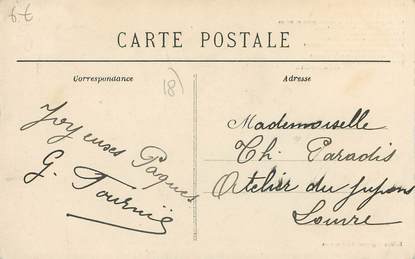 6€
CARTE POSTALE
Correspondance
18)
Adresse
Joyeuses Paques
G. Fournié
Mademoiselle
Th. Paradis
Atelier du Jupons
Louvre